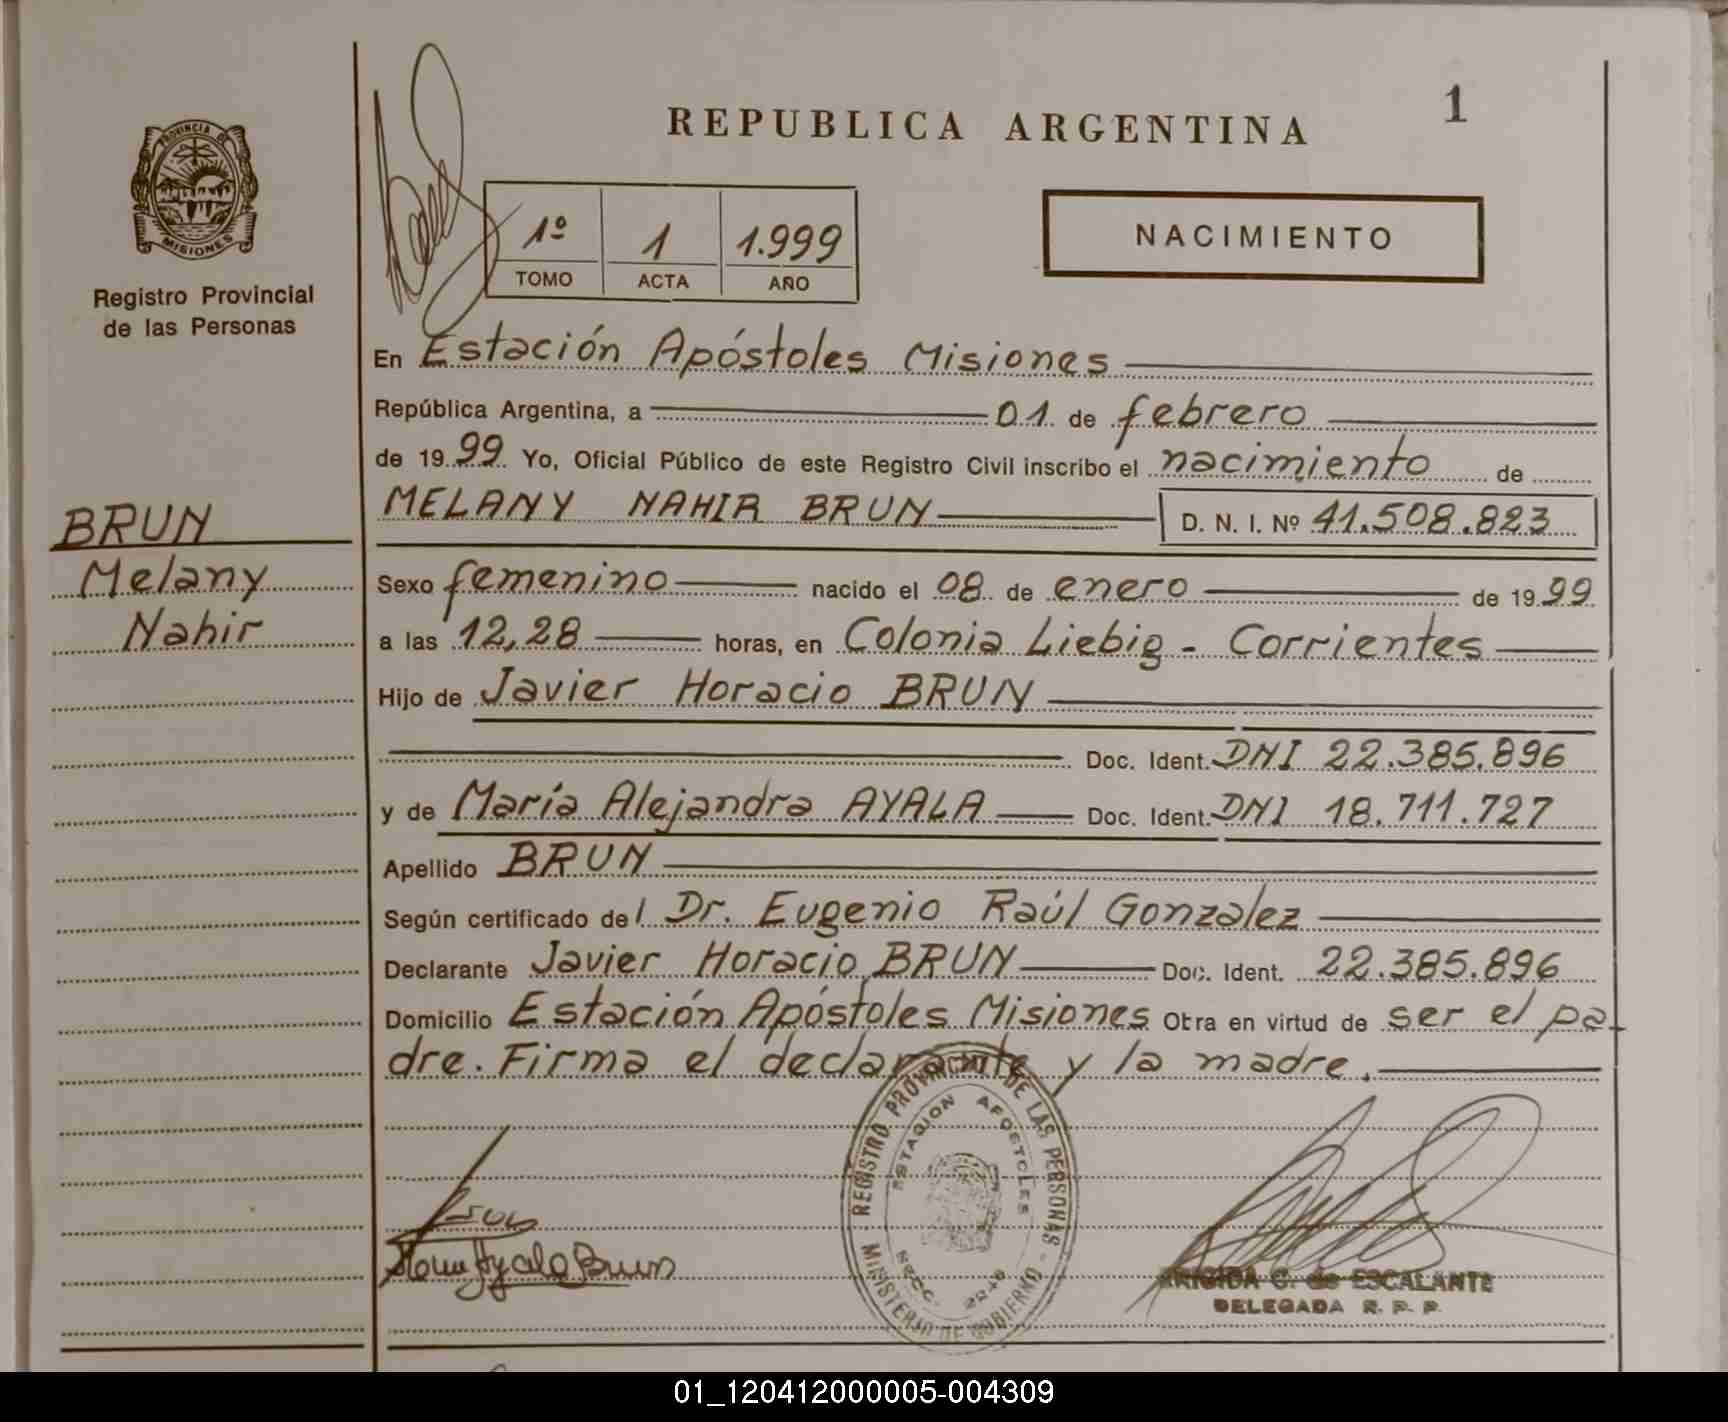 REPUBLICA ARGENTINA
1
PROVINCIA DE
MISIONES
Registro Provincial
de las Personas
1º 1 1.999
TOMO ACTA AÑO
NACIMIENTO
En Estación Apóstoles Misiones
República Argentina, a 01 de febrero
de 1999 Yo, Oficial Público de este Registro Civil inscribo el nacimiento de
MELANY NAHIR BRUN D. N. I. Nº 41.508.823
BRUN
Melany
Nahir
Sexo femenino nacido el 08 de enero de 1999
a las 12,28 horas, en Colonia Liebig - Corrientes
Hijo de Javier Horacio BRUN
Doc. Ident. DNI 22.385.896
y de María Alejandra AYALA Doc. Ident. DNI 18.711.727
Apellido BRUN
Según certificado del Dr. Eugenio Raúl Gonzalez
Declarante Javier Horacio BRUN Doc. Ident. 22.385.896
Domicilio Estación Apóstoles Misiones Otra en virtud de ser el pa-
dre. Firma el declarante y la madre.
REGISTRO PROVINCIAL DE LAS PERSONAS -
MINISTERIO DE GOBIERNO -
ESTACION APOSTOLES
SECC.
Ayala Brun
BRIGIDA C. de ESCALANTE
DELEGADA R. P. P.
01_120412000005-004309